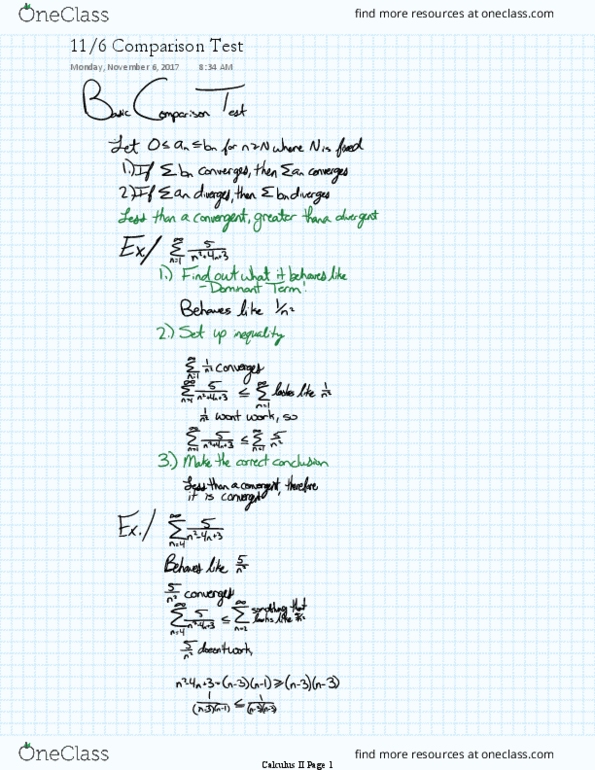 OneClass
find more resources at oneclass.com
11/6 Comparison Test
Monday, November 6, 2017 8:34 AM
Basic Comparison Test
Let 0 ≤ an ≤ bn for n≥N where N is fixed
1.) If Σ bn converges, then Σ an converges
2.) If Σ an diverges, then Σ bn diverges
Less than a convergent, greater than a divergent
Ex/ ∞Σn=1 5/(n²+4n+3)
1.) Find out what it behaves like
- Dominant Term!
Behaves like 1/n²
2.) Set up inequality
∞Σn=1 1/n² converges
∞Σn=1 5/(n²+4n+3) ≤ ∞Σn=1 looks like 1/n²
1/n² wont work, so
∞Σn=1 5/(n²+4n+3) ≤ ∞Σn=1 5/n²
3.) Make the correct conclusion
Less than a convergent, therefore
it is convergent
Ex./ ∞Σn=4 5/(n²-4n+3)
Behaves like 5/n²
5/n² converges
∞Σn=4 5/(n²-4n+3) ≤ ∞Σ something that looks like
5/n² doesnt work,
n²-4n+3 = (n-3)(n-1) ≥ (n-3)(n-3)
1/((n-3)(n-1)) ≤ 1/((n-3)(n-3))
OneClass
find more resources at oneclass.com
Calculus II Page 1